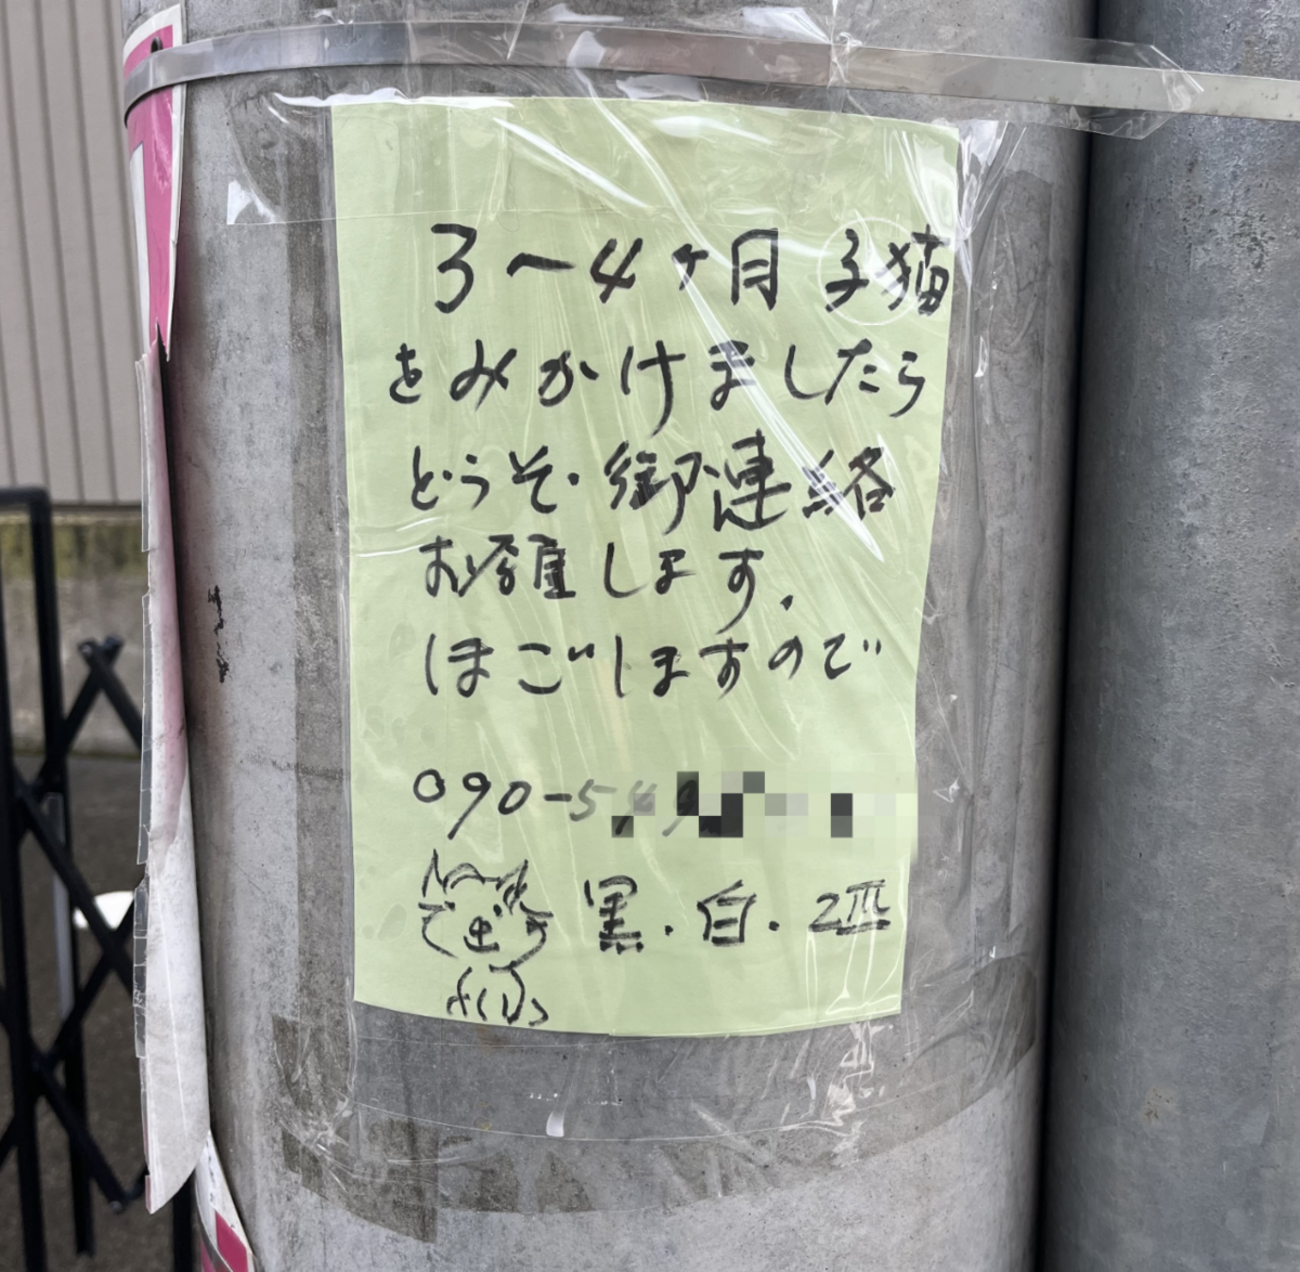 3〜4ヶ月 子猫
をみかけましたら
どうぞ御連絡
お願します.
ほごしますので
090-5
黒.白.2匹